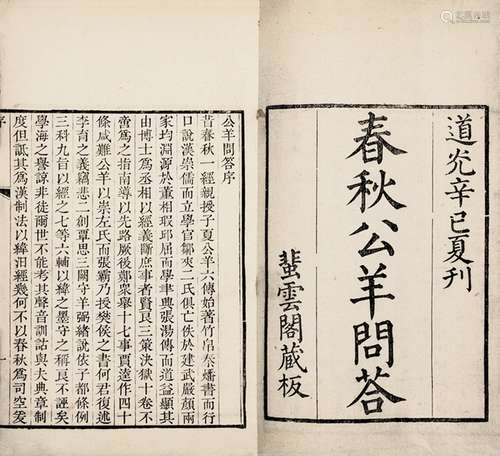 道光辛巳夏刊
春秋公羊問答
蜚雲閣藏板
公羊問答序
昔春秋一經親授子夏公羊六傳始著竹帛秦燔書而行
口說漢崇儒而立學官鄒夾二氏俱亡佚於建武嚴顏兩
家均淵源於董相瑕邱屈而學聿興張湯傳而道益顯其
由博士爲丞相以經義斷庶事者賢良三策決獄十卷不
啻爲之指南導以先路厥後鄭衆舉十七事賈逵作四十
條咸難公羊以崇左氏而張霸乃授樊侯之書何君復述
李育之義竊悲二創覃思三闕守羊弼緒說依子都條例
三科九旨以經之七等六輔以緯之墨守之稱良不誣矣
學海之譽諒非徒爾世不能考其聲音訓詁與夫典章制
度但詆其爲漢制法以緯汩經幾何不以春秋爲司空爰
序